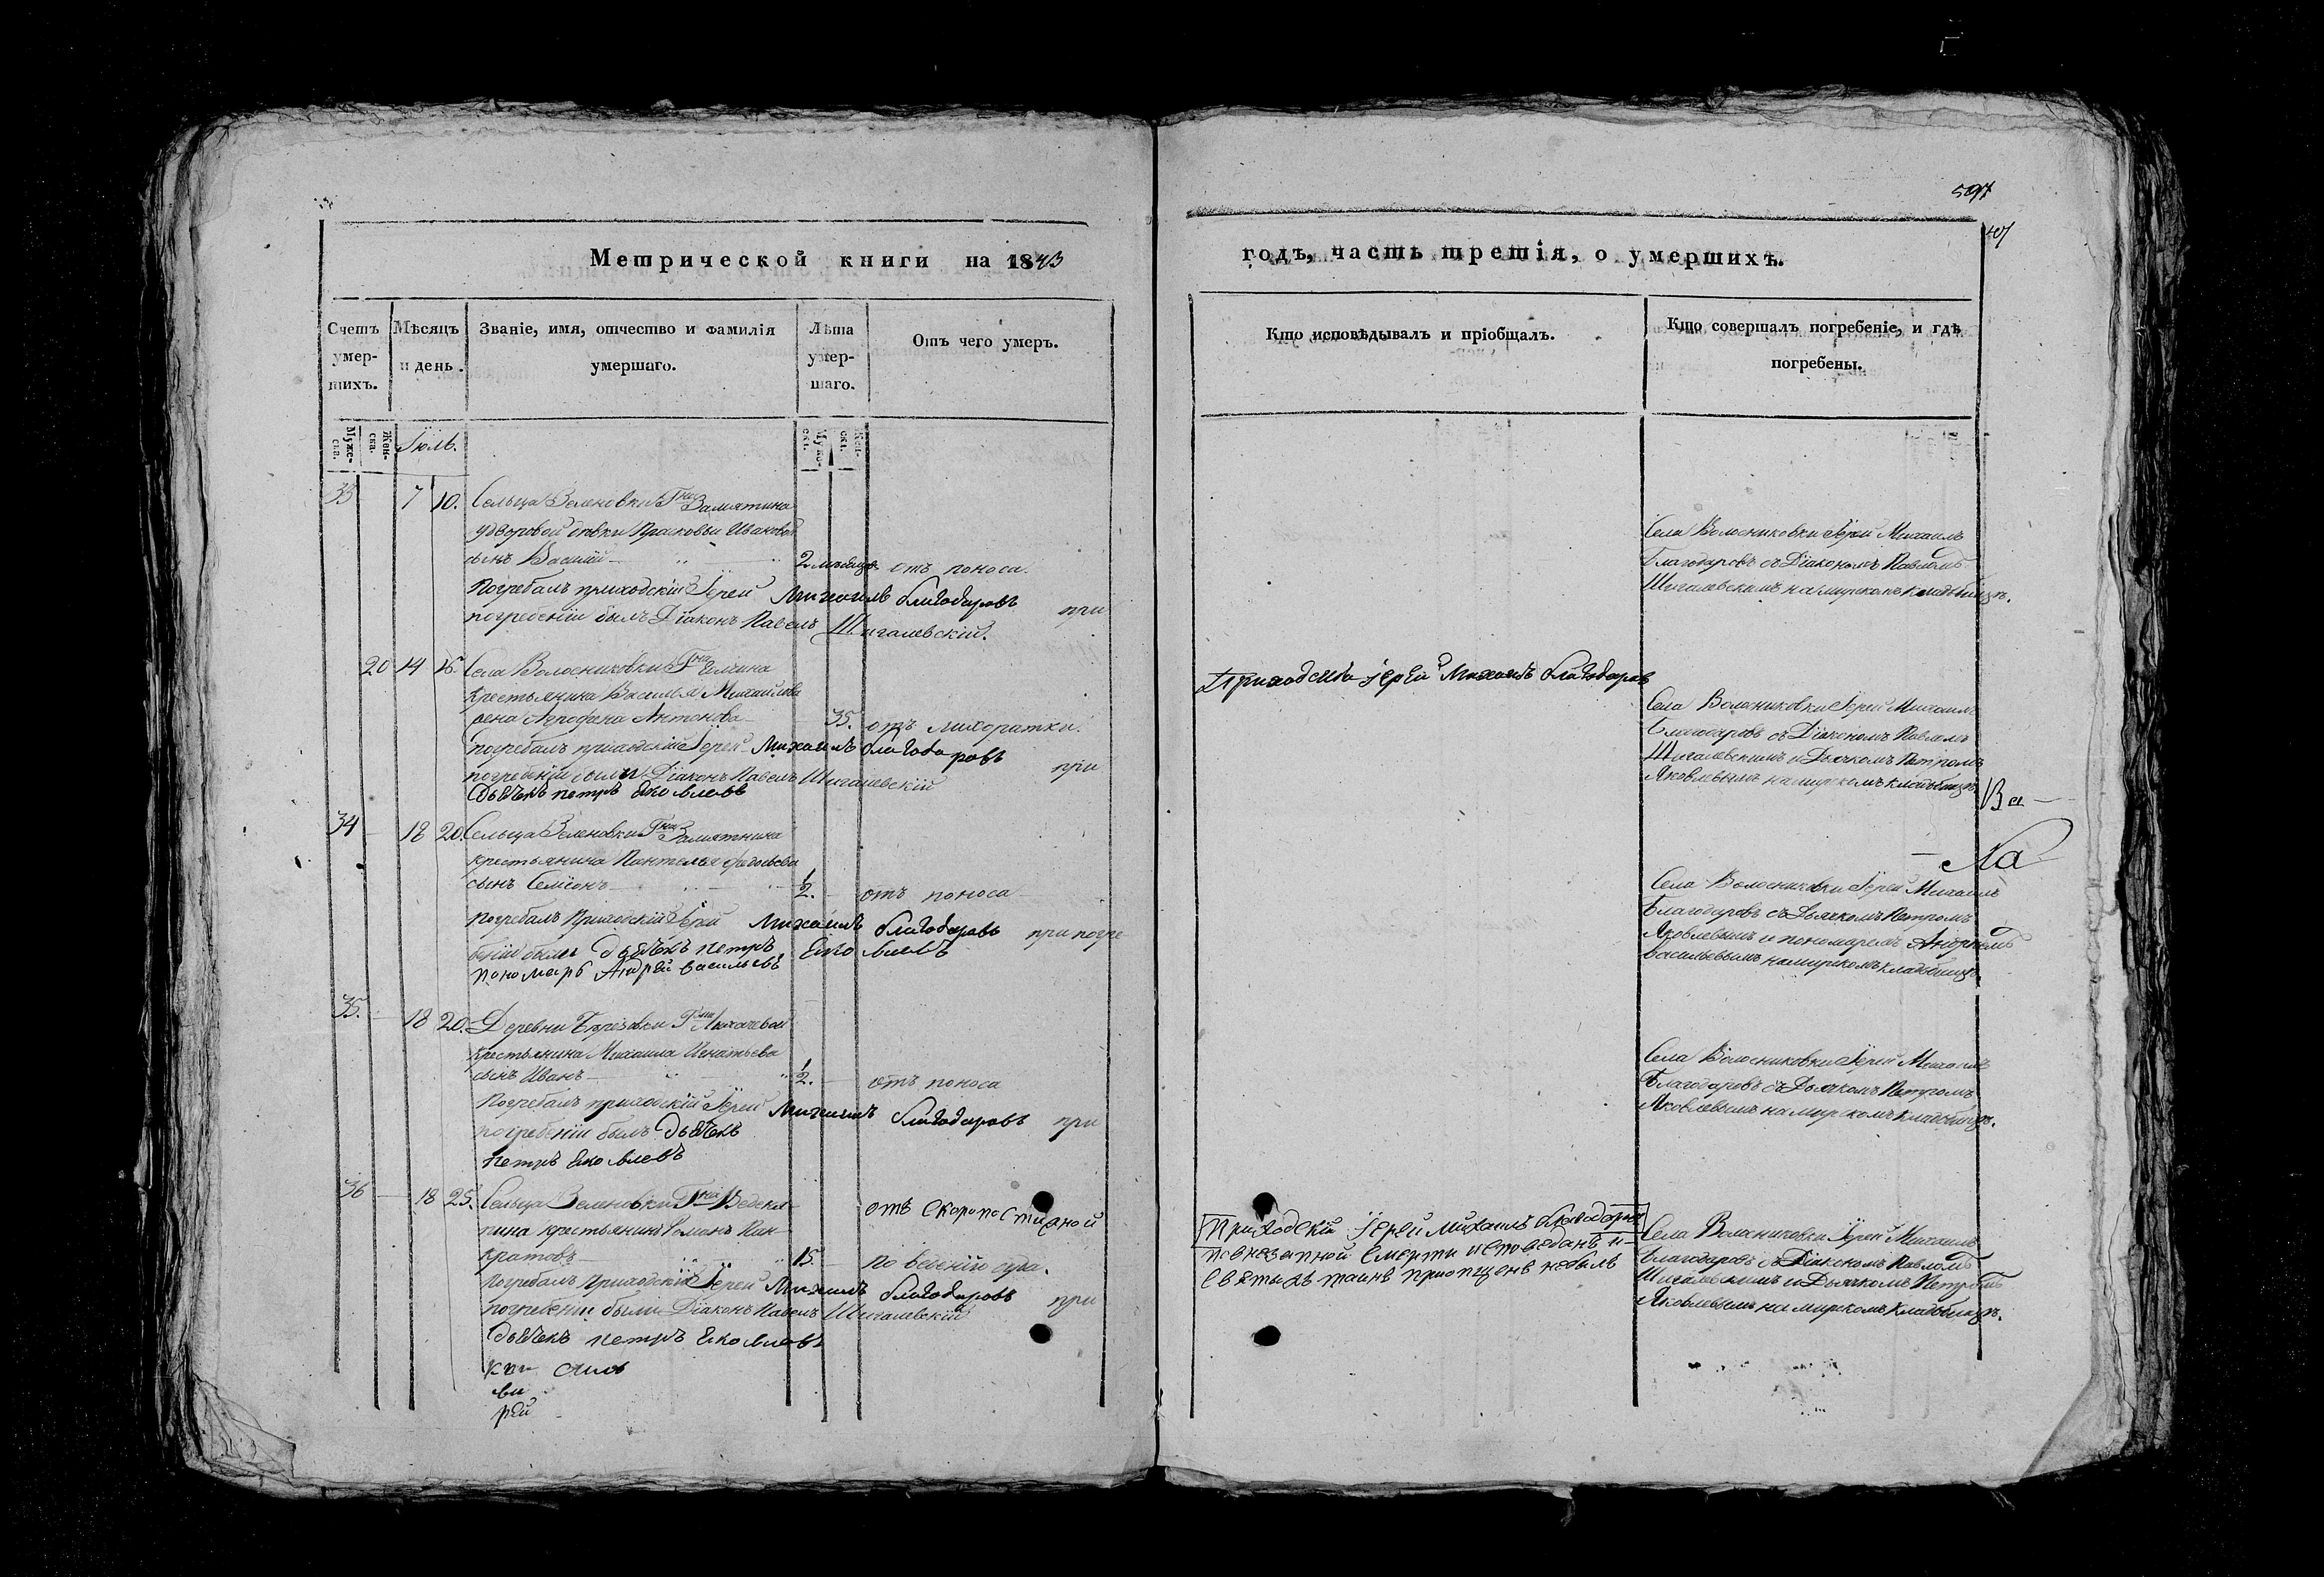 597
401
Метрической книги на 1843
годъ, часть третія, о умершихъ.
Счетъ умер-шихъ.
Мѣсяцъ и день.
Званіе, имя, отчество и фамилія умершаго.
Лѣта умер-шаго.
Отъ чего умеръ.
Кто исповѣдывалъ и пріобщалъ.
Кто совершалъ погребеніе, и гдѣ погребены.
Мужес-ка.
Женс-ка.
Іюль.
33 7 10. Сельца Зеленовки Гна Замятнина
удворовой дѣвки Прасковьи Ивановой
сынъ Василій 2 мѣсяца отъ поноса.
Погребалъ приходскій Іерей Михаилъ благодаровъ при
погребеніи былъ Діаконъ Павелъ Шигалевскій.
Села Волосниковки Іерей Михаилъ
Благодаровъ съ Діакономъ Павломъ
Шигалевскимъ на мирскомъ кладбищѣ.
20 14 16. Села Волосниковки Гна
крестьянина Василья Михайлова
жена Агрофена Антонова 35. отъ лихоратки.
погребалъ приходскій Іерей Михаилъ благодаровъ при
погребеніи были Діаконъ Павелъ Шигалевскій
дьячекъ петръ яковлевъ
Приходскій іерей Михаилъ благодаровъ
Села Волосниковки Іерей Михаилъ
Благодаровъ съ Діакономъ Павломъ
Шигалевскимъ и Дьячкомъ Петромъ
Яковлевымъ на мирскомъ кладбищѣ.
34 18 20. Сельца Зеленовки Гна Замятнина
крестьянина Пантелья Федосѣева
сынъ Семіонъ 1/2. отъ поноса
погребалъ Приходскій Іерей Михаилъ благодаровъ при погре
беніи были дьячекъ петръ яковлевъ
пономарь Андрей васильевъ
Села Волосниковки Іерей Михаилъ
Благодаровъ съ Дьячкомъ Петромъ
Яковлевымъ и пономаремъ Андреемъ
Васильевымъ на мирскомъ кладбищѣ.
35. 18 20. Деревни Березовки Гжи Лихачевой
крестьянина Михаила Игнатьева
сынъ Иванъ 1/2. отъ поноса
Погребалъ приходскій Іерей Михаилъ благодаровъ при
погребеніи былъ дьячекъ
петръ яковлевъ
Села Волосниковки Іерей Михаилъ
Благодаровъ съ Дьячкомъ Петромъ
Яковлевымъ на мирскомъ кладбищѣ.
36 18 25. Сельца Зеленовки Гна Веденя-
пина крестьянинъ Романъ Пан-
кратовъ 15. отъ скоропостижной
по веденію суда.
погребалъ Приходскій Іерей Михаилъ благодаровъ при
погребеніи были Діаконъ Павелъ Шигалевскій
дьячекъ петръ яковлевъ
Приходскій іерей Михаилъ благодаровъ
повнезапной смерти исповеданъ и
святыхъ таинъ приопщенъ небылъ
Села Волосниковки Іерей Михаилъ
Благодаровъ съ Діакономъ Павломъ
Шигалевскимъ и Дьячкомъ Петромъ
Яковлевымъ на мирскомъ кладбищѣ.
рей